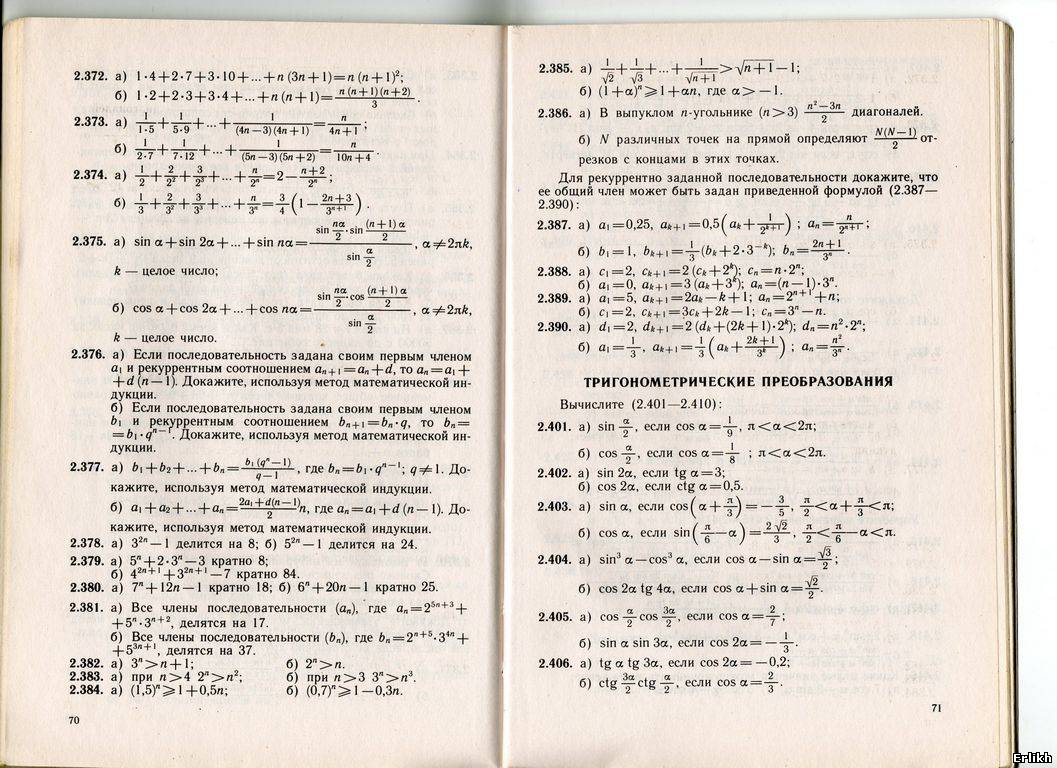 2.372. а) 1·4+2·7+3·10+...+n(3n+1)=n(n+1)²;
б) 1·2+2·3+3·4+...+n(n+1)=n(n+1)(n+2)/3.
2.373. а) 1/(1·5)+1/(5·9)+...+1/((4n−3)(4n+1))=n/(4n+1);
б) 1/(2·7)+1/(7·12)+...+1/((5n−3)(5n+2))=n/(10n+4).
2.374. а) 1/2+2/2²+3/2³+...+n/2ⁿ=2−(n+2)/2ⁿ;
б) 1/3+2/3²+3/3³+...+n/3ⁿ=3/4(1−(2n+3)/3ⁿ⁺¹).
2.375. а) sin α+sin 2α+...+sin nα=(sin nα/2·sin (n+1)α/2)/(sin α/2), α≠2πk,
k — целое число;
б) cos α+cos 2α+...+cos nα=(sin nα/2·cos (n+1)α/2)/(sin α/2), α≠2πk,
k — целое число.
2.376. а) Если последовательность задана своим первым членом
a₁ и рекуррентным соотношением aₙ₊₁=aₙ+d, то aₙ=a₁+
+d(n−1). Докажите, используя метод математической ин-
дукции.
б) Если последовательность задана своим первым членом
b₁ и рекуррентным соотношением bₙ₊₁=bₙ·q, то bₙ=
=b₁·qⁿ⁻¹. Докажите, используя метод математической ин-
дукции.
2.377. а) b₁+b₂+...+bₙ=b₁(qⁿ−1)/(q−1), где bₙ=b₁·qⁿ⁻¹; q≠1. До-
кажите, используя метод математической индукции.
б) a₁+a₂+...+aₙ=(2a₁+d(n−1))/2 n, где aₙ=a₁+d(n−1). До-
кажите, используя метод математической индукции.
2.378. а) 3²ⁿ−1 делится на 8; б) 5²ⁿ−1 делится на 24.
2.379. а) 5ⁿ+2·3ⁿ−3 кратно 8;
б) 4²ⁿ⁺¹+3²ⁿ⁺¹−7 кратно 84.
2.380. а) 7ⁿ+12n−1 кратно 18; б) 6ⁿ+20n−1 кратно 25.
2.381. а) Все члены последовательности (aₙ), где aₙ=2⁵ⁿ⁺³+
+5ⁿ·3ⁿ⁺², делятся на 17.
б) Все члены последовательности (bₙ), где bₙ=2ⁿ⁺⁵·3⁴ⁿ+
+5³ⁿ⁺¹, делятся на 37.
2.382. а) 3ⁿ>n+1; б) 2ⁿ>n.
2.383. а) при n>4 2ⁿ>n²; б) при n>3 3ⁿ>n³.
2.384. а) (1,5)ⁿ⩾1+0,5n; б) (0,7)ⁿ⩾1−0,3n.
70
2.385. а) 1/√2+1/√3+...+1/√(n+1)>√(n+1)−1;
б) (1+α)ⁿ⩾1+αn, где α>−1.
2.386. а) В выпуклом n-угольнике (n>3) (n²−3n)/2 диагоналей.
б) N различных точек на прямой определяют N(N−1)/2 от-
резков с концами в этих точках.
Для рекуррентно заданной последовательности докажите, что
ее общий член может быть задан приведенной формулой (2.387—
2.390):
2.387. а) a₁=0,25, aₖ₊₁=0,5(aₖ+1/2ᵏ⁺¹); aₙ=n/2ⁿ⁺¹;
б) b₁=1, bₖ₊₁=1/3(bₖ+2·3⁻ᵏ); bₙ=(2n+1)/3ⁿ.
2.388. а) c₁=2, cₖ₊₁=2(cₖ+2ᵏ); cₙ=n·2ⁿ;
б) a₁=0, aₖ₊₁=3(aₖ+3ᵏ); aₙ=(n−1)·3ⁿ.
2.389. а) a₁=5, aₖ₊₁=2aₖ−k+1; aₙ=2ⁿ⁺¹+n;
б) c₁=2, cₖ₊₁=3cₖ+2k−1; cₙ=3ⁿ−n.
2.390. а) d₁=2, dₖ₊₁=2(dₖ+(2k+1)·2ᵏ); dₙ=n²·2ⁿ;
б) a₁=1/3, aₖ₊₁=1/3(aₖ+(2k+1)/3ᵏ); aₙ=n²/3ⁿ.
ТРИГОНОМЕТРИЧЕСКИЕ ПРЕОБРАЗОВАНИЯ
Вычислите (2.401—2.410):
2.401. а) sin α/2, если cos α=1/9, π<α<2π;
б) cos α/2, если cos α=1/8; π<α<2π.
2.402. а) sin 2α, если tg α=3;
б) cos 2α, если ctg α=0,5.
2.403. а) sin α, если cos(α+π/3)=−3/5, π/2<α+π/3<π;
б) cos α, если sin(π/6−α)=2√2/3, π/2<π/6−α<π.
2.404. а) sin³ α−cos³ α, если cos α−sin α=√3/2;
б) cos 2α tg 4α, если cos α+sin α=√2/2.
2.405. а) cos α/2 cos 3α/2, если cos α=2/7;
б) sin α sin 3α, если cos 2α=−1/3.
2.406. а) tg α tg 3α, если cos 2α=−0,2;
б) ctg 3α/2 ctg α/2, если cos α=2/3.
71
Erlikh